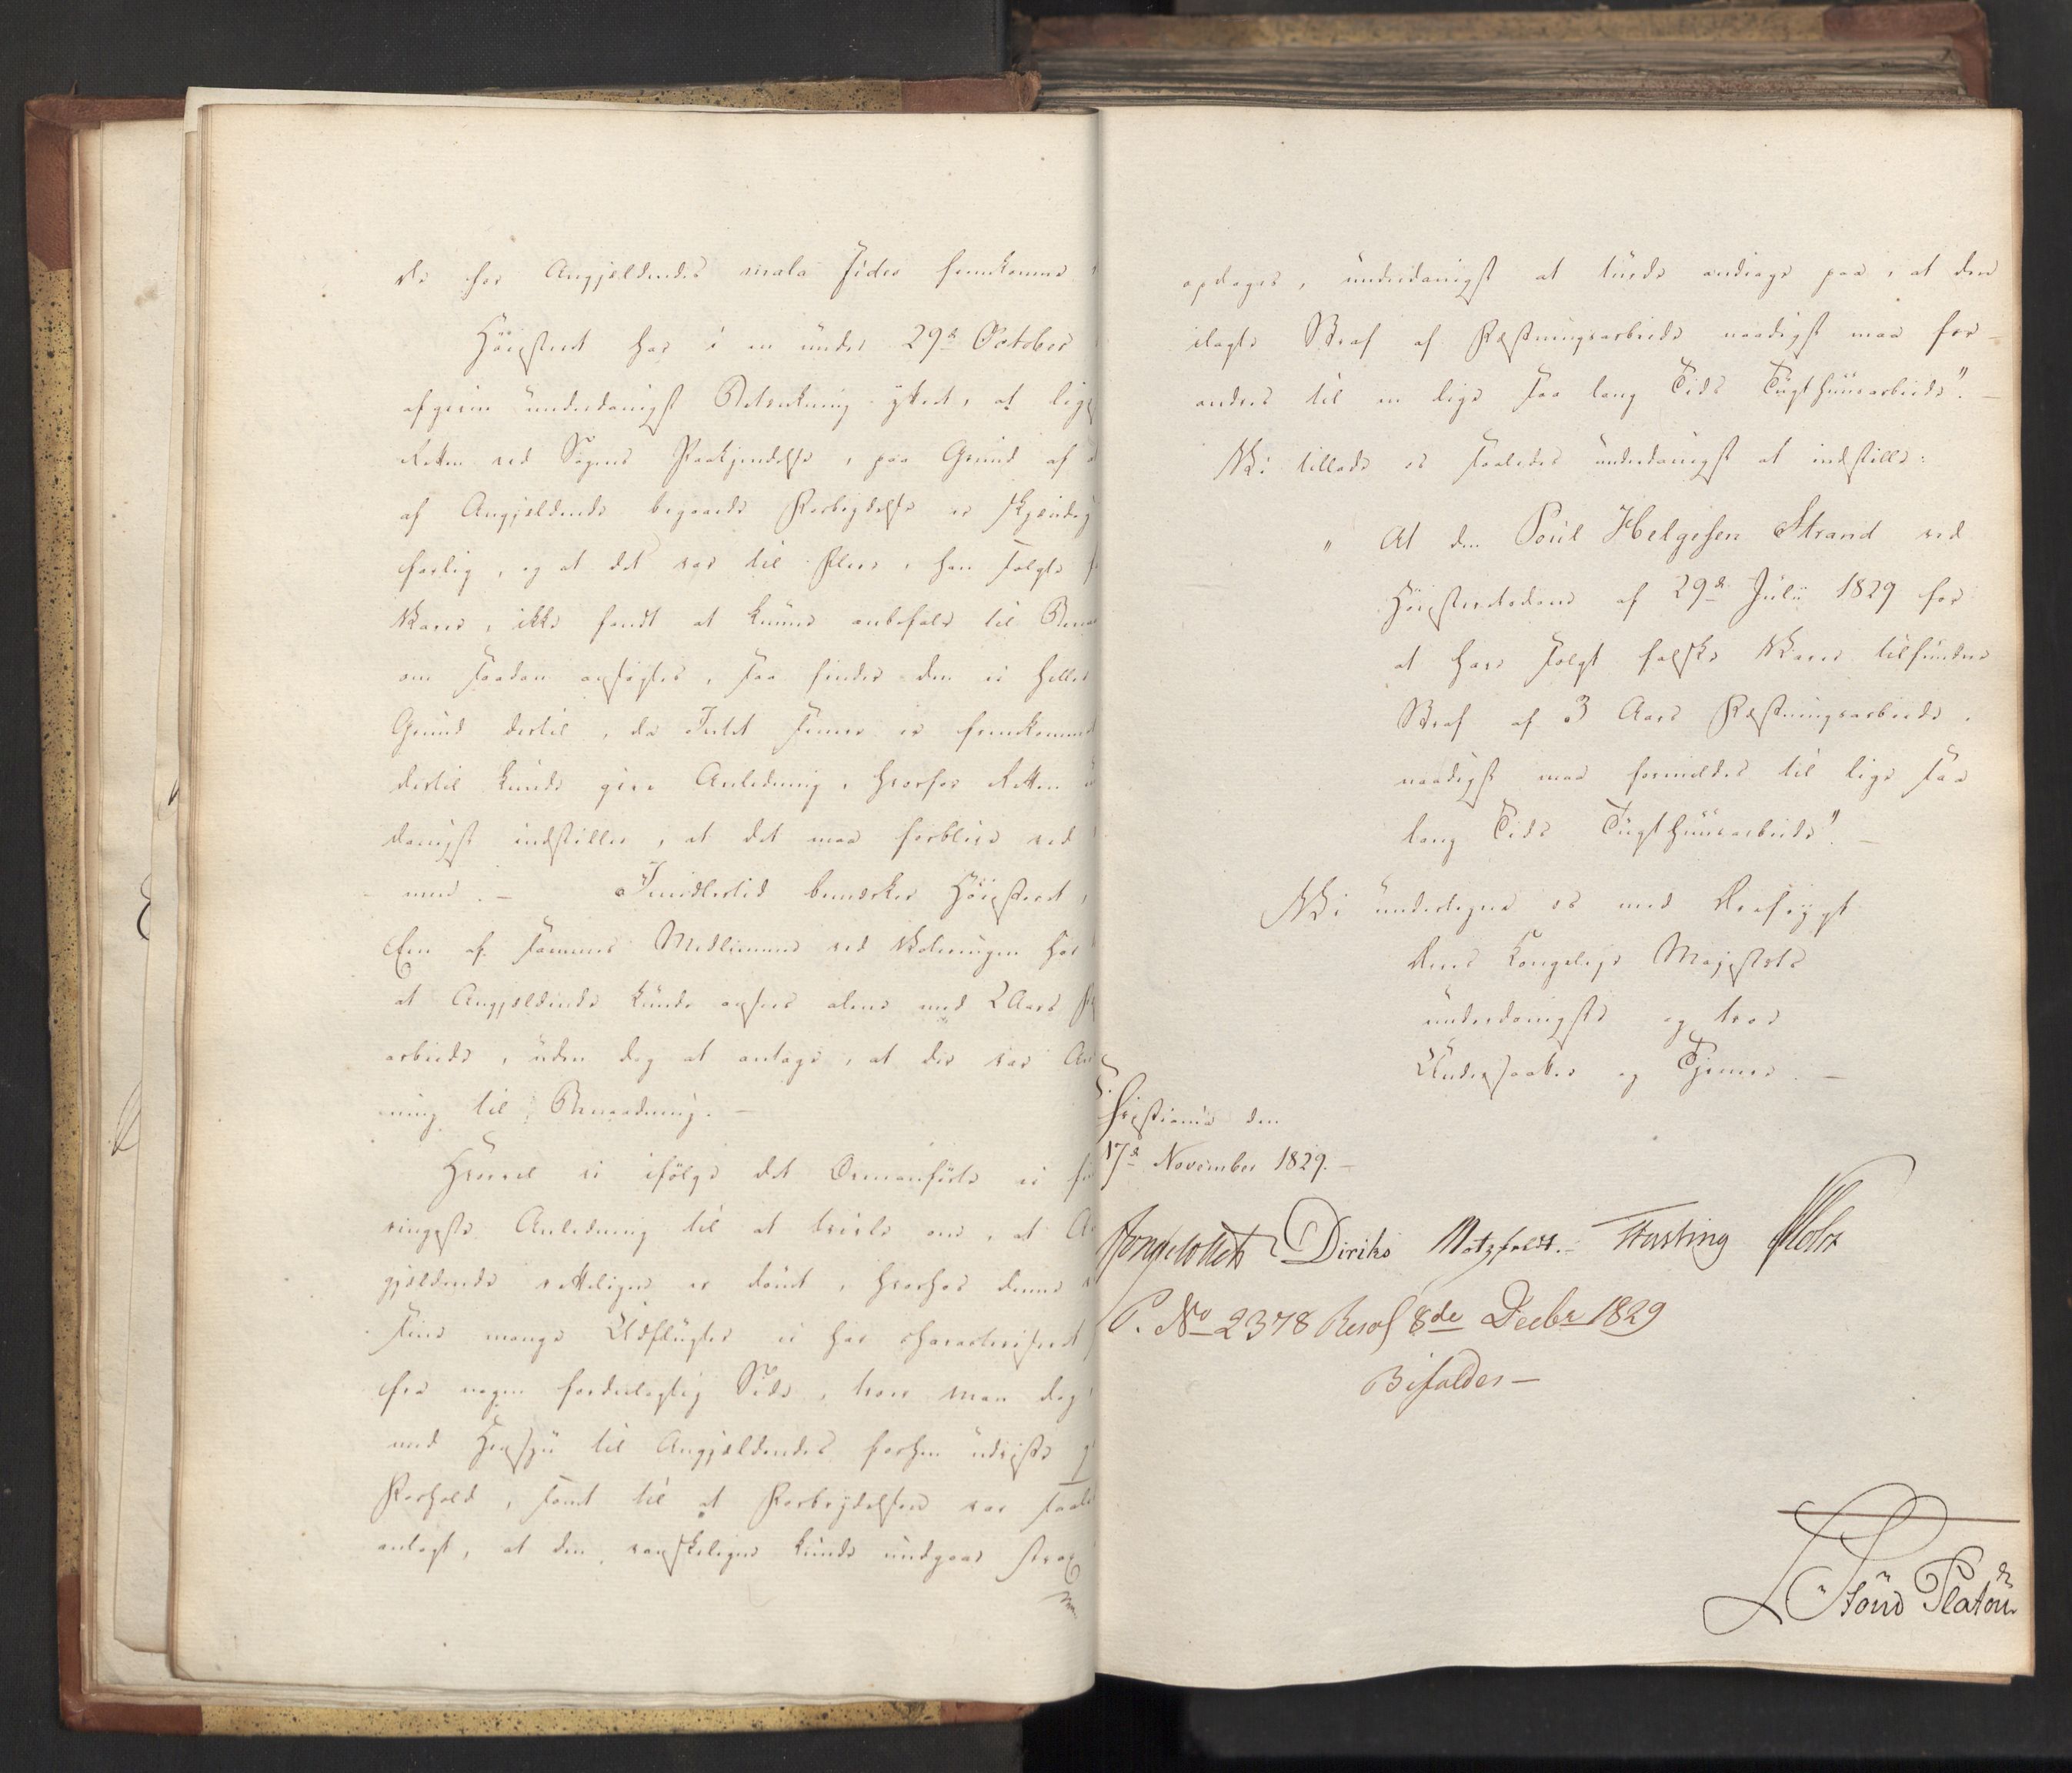 de for Angjældendes mala fides fremkomne
Höiesteret har i en under 29de October
afgiven underdanigst Betænkning yttret, at lige
Retten ved Sagens Paakjendelse, paa Grund af
af Angjældende begaaede Forbrydelse er
farlig, og at det var til Flere, han solgte
Varer, ikke fandt at kunne anbefale til Benaad
om saadan ansøgtes, saa finder den ei heller
Grund dertil, da Intet senere er fremkommet
dertil kunde give Anledning, hvorfor Retten
danigst indstiller, at det maa forblive ved
men. - Imidlertid bemærker Höiesteret,
Een af sammes Medlemmer ved Voteringen har
at Angjældende kunde ansees alene med 2 Aars
arbeide, uden dog at antage, at der var An
ning til Benaadning. -
Hvorvel vi ifölge det Ovenanførte ei
ringeste Anledning til at tvivle om, at An
gjældende retteligen er dömt, hvorhos denne
sine mange Udflugter ei har characteriseret
fra nogen fordeelagtig Side, troer man dog
med Hensyn til Angjældendes forhen udviste
Forhold, samt til at Forbrydelsen var saale
anlagt, at den vanskeligen kunde undgaae strax
opdages, underdanigst at turde andrage paa, at den
ilagte Straf af Fæstningsarbeide naadigst maa for-
andres til en lige saa lang Tids Tugthuusarbeide". -
Vi tillade os saaledes underdanigst at indstille:
" At den Poul Helgesen Strand ved
Höiesteretsdom af 29de Julii 1829 for
at have solgt falske Varer tilfundne
Straf af 3 Aars Fæstningsarbeide,
naadigst maa formildes til lige saa
lang Tids Tugthuusarbeide". -
Vi undertegne os med Ærefrygt
Deres Kongelige Majestets
underdanigste og troe
Undersaatter og Tjenere. -
Christiania den
17de November 1829. -
Diriks Motzfeldt. Fasting
P. No 2378 Resol 8de Decbr 1829
Bifaldes -
Platou